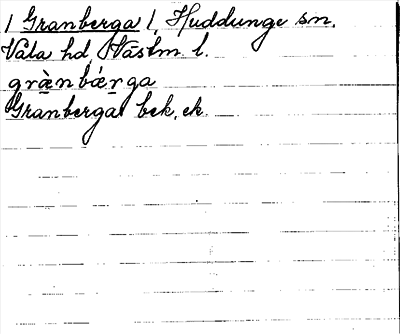 / Granberga /, Huddunge sn.
Våla hd, Västm. l.
grànbǽrga
Granberga bek, ek.